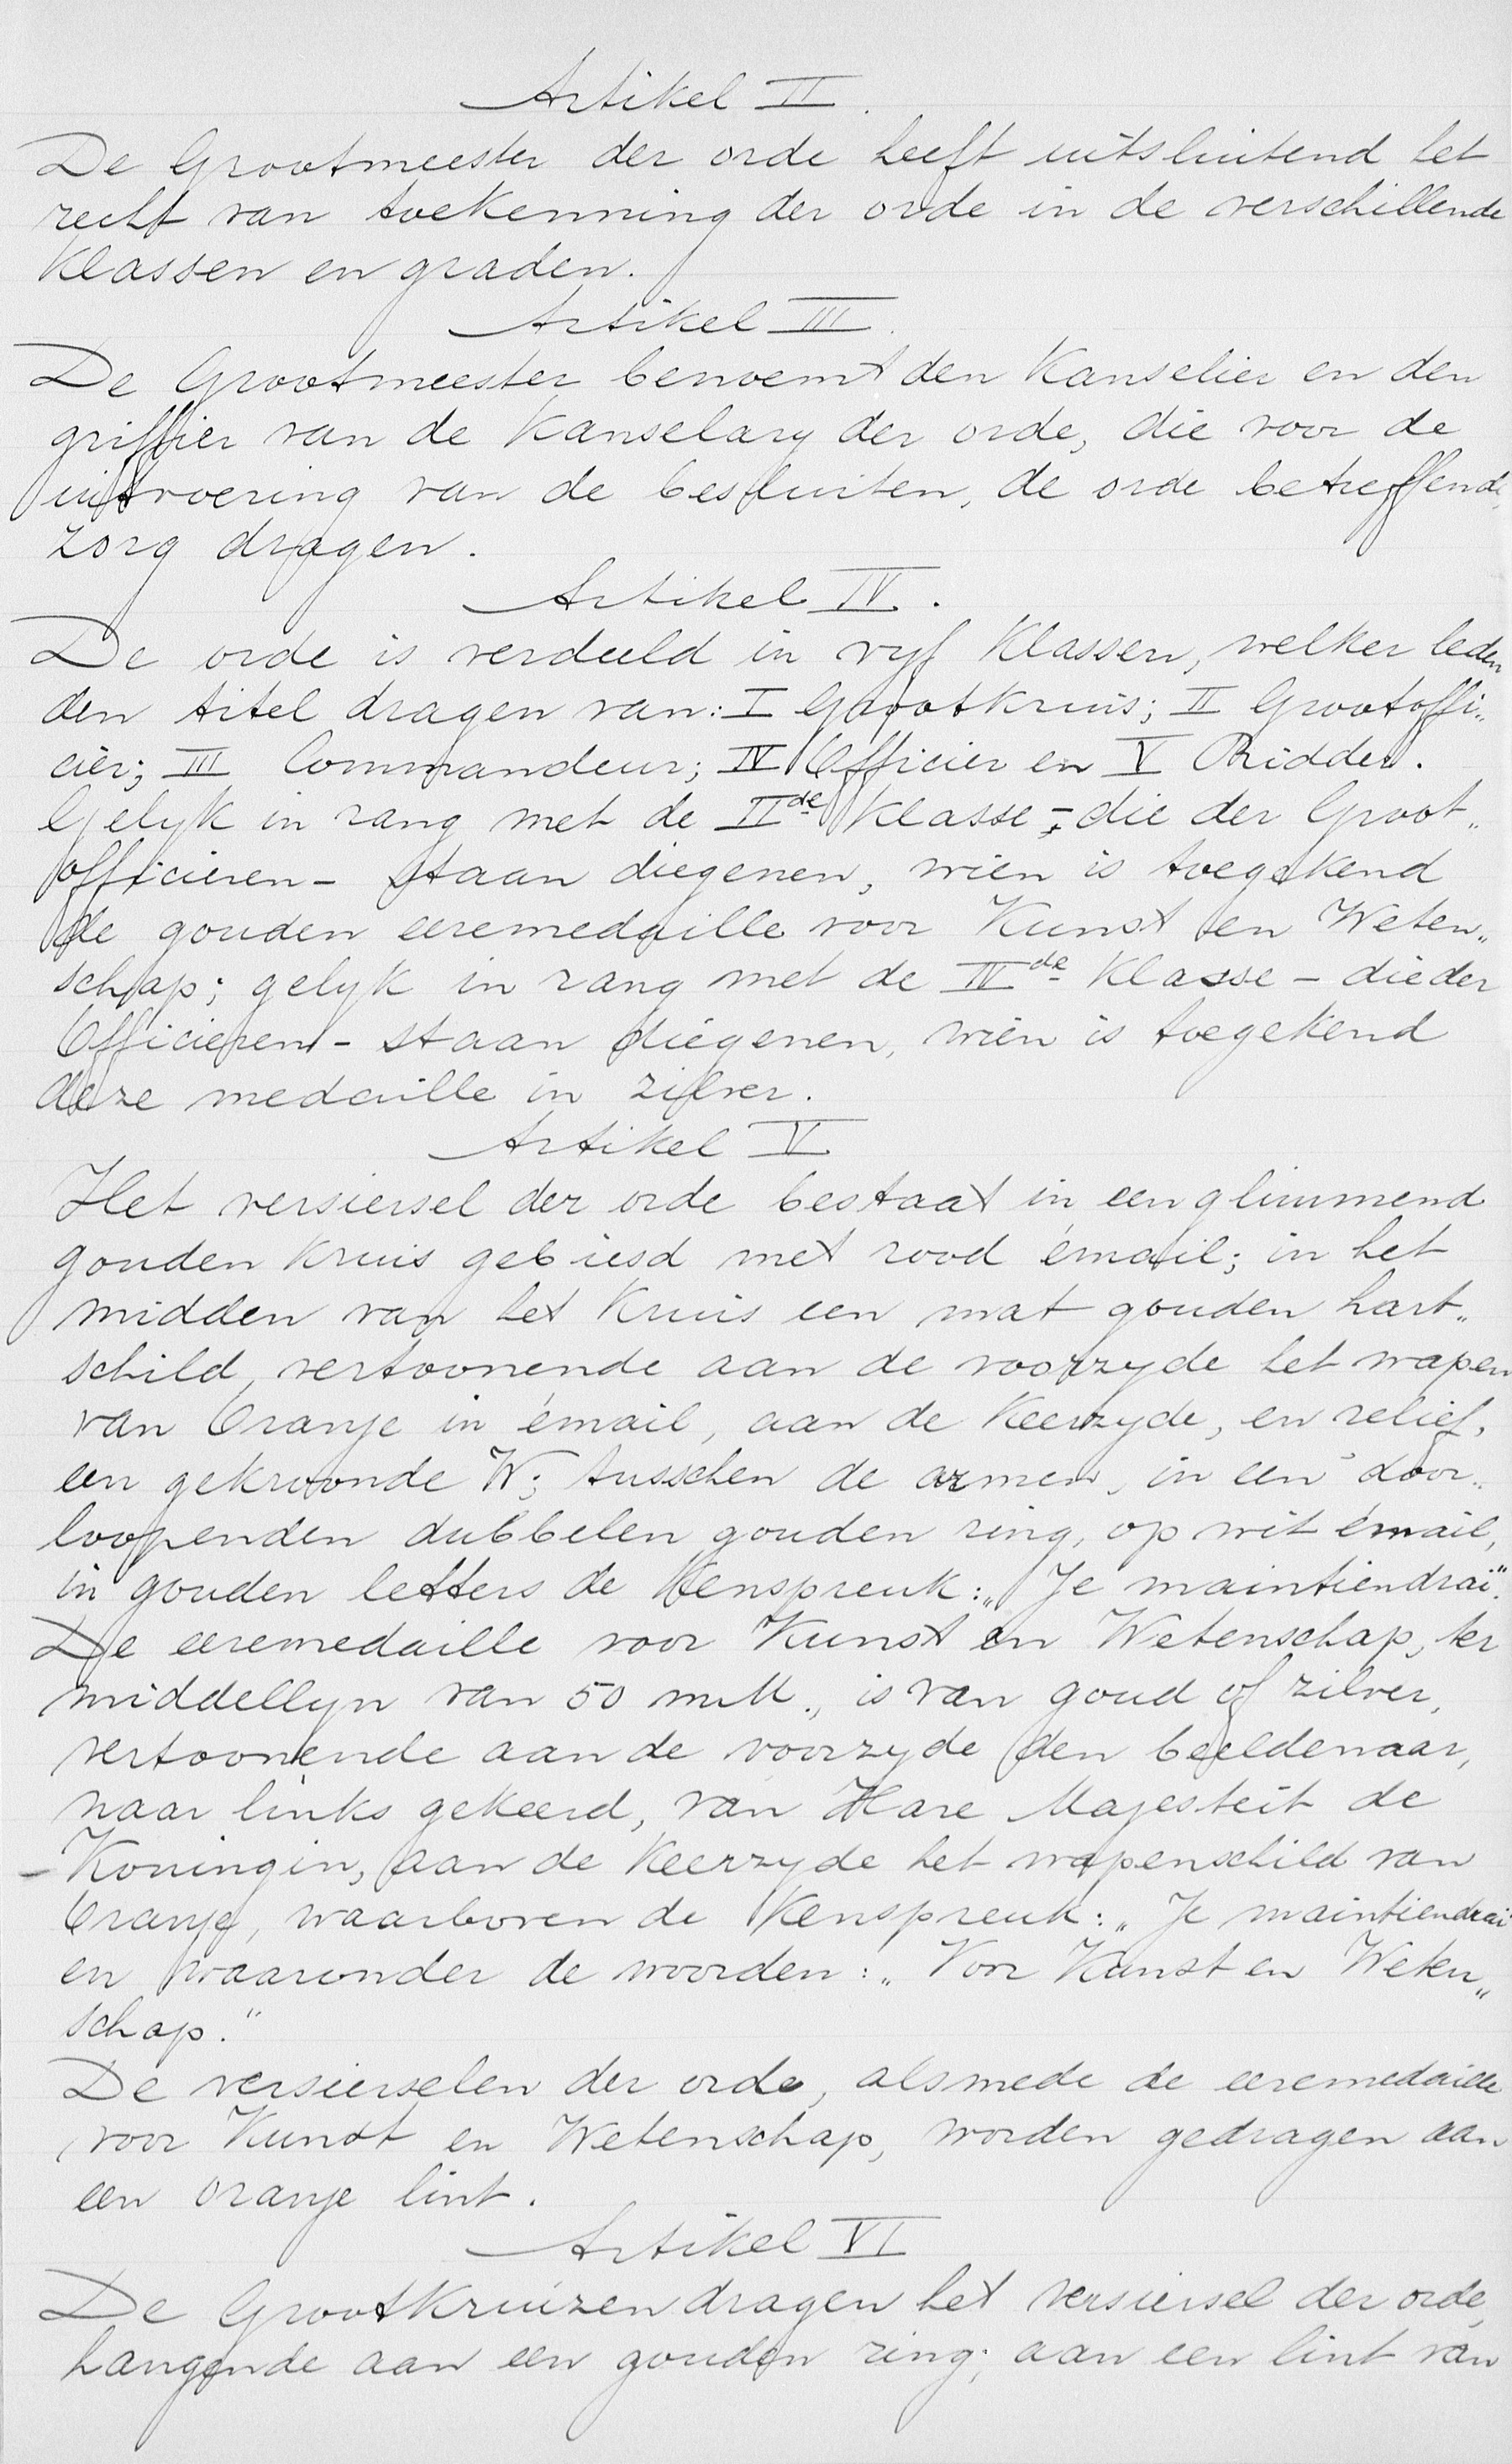 Artikel II.
De Grootmeester der orde heeft uitsluitend het
recht van toekenning der orde in de verschillende
Klassen en graden.
Artikel III.
De Grootmeester benoemt den Kanselier en den
griffier van de Kanselary der orde, die voor de
uitvoering van de besluiten, de orde betreffende,
zorg dragen.
Artikel IV.
De orde is verdeeld in vyf Klassen, welker leden
den titel dragen van: I Grootkruis; II Grootoffi„
cier; III Commandeur; IV Officier en V Ridder.
Gelyk in rang met de IIde Klasse, - die der Groot„
officieren - staan diegenen, wien is toegekend
de gouden eeremedaille voor Kunst en Weten„
schap; gelyk in rang met de IVde Klasse - die der
Officieren - staan diegenen, wien is toegekend
deze medaille in zilver.
Artikel V
Het versiersel der orde bestaat in een glimmend
gouden Kruis gebiesd met rood émail; in het
midden van het Kruis een mat gouden hart„
schild, vertoonende aan de voorzyde het wapen
van Oranje in émail, aan de Keerzyde, en relief,
een gekroonde W; tusschen de armen, in een door„
loopenden dubbelen gouden ring, op wit émail,
in gouden letters de Kenspreuk: „Je maintiendrai".
De eeremedaille voor Kunst en Wetenschap, ter
middellyn van 50 mM., is van goud of zilver,
vertoonende aan de voorzyde den beeldenaar,
naar links gekeerd, van Hare Majesteit de
Koningin, aan de Keerzyde het wapenschild van
Oranje, waarboven de Kenspreuk: „Je maintiendrai"
en waaronder de woorden: „Voor Kunst en Weten„
schap."
De versierselen der orde, alsmede de eeremedaille
voor Kunst en Wetenschap, worden gedragen aan
een oranje lint.
Artikel VI
De Grootkruizen dragen het versiersel der orde,
hangende aan een gouden ring, aan een lint van